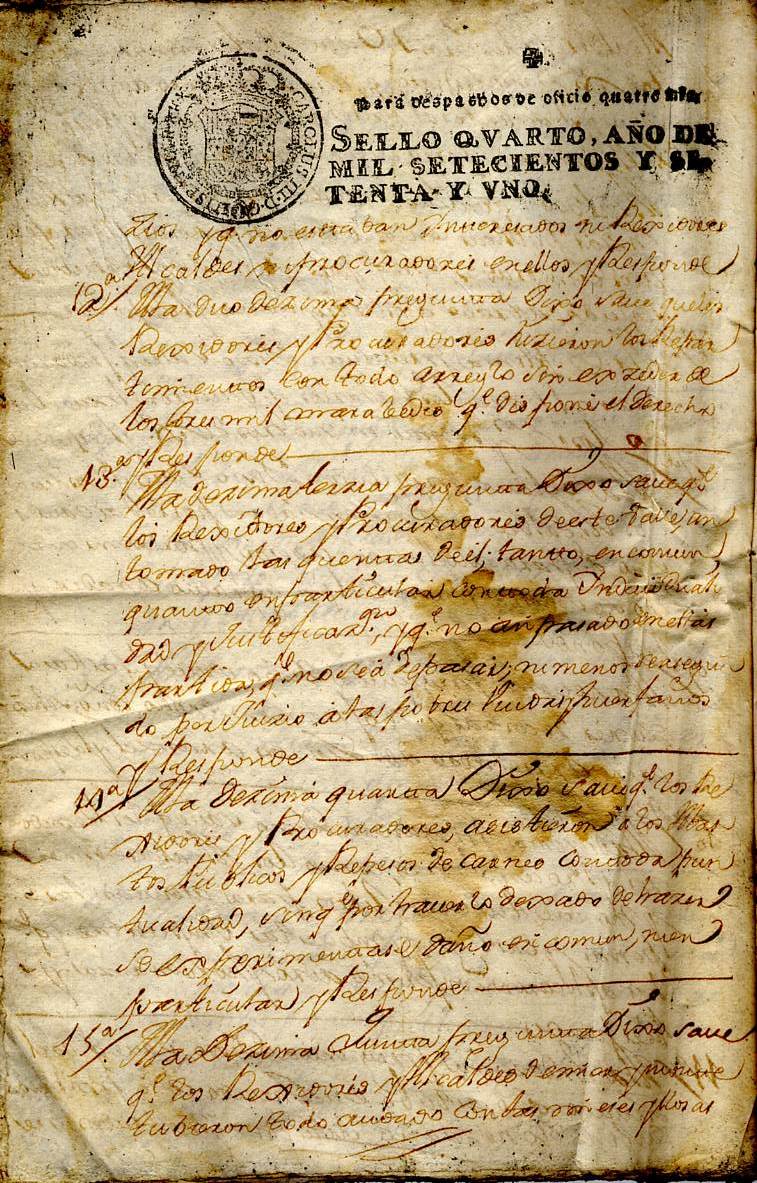 CAROLUS III D G
Para despachos de oficio quatro mrs.
SELLO QVARTO, AÑO DE
MIL SETECIENTOS Y SE-
TENTA Y VNO.
y q.e no estavan Interesados ni Rexidores
Alcaldes ni procuradores en ellos y Responde
12ª A la duodezima pregunta Dixo save que los
Rexidores y Procuradores hizieron los Repar
timientos con todo arreglo sin exzeder de
los tres mil maravedis q.e dispone el derecho
y Responde
13.ª A la dezima terzia pregunta Dixo save q.e
los Rexidores y Procuradores de este Valle, an
tomado las quentas de el, tanto, en comun,
quanto en particular con toda Individuali
dad y Justificaz.on, y q.e no an pasado en ellas
partida, q.e no sea de pasar, ni menos persegui
do por Juizio a las pobres Viudas y huerfanos
y Responde
14ª A la dezima quarta Dixo save q.e los Re
xidores y Procuradores, asistieron a los
tos Publicos y Repesos de carnes con toda pun
tualidad, sin q.e por haverlo dexado de hazer
se experimentase daño en comun, ni en
particular y Responde
15ª A la Dezima quinta pregunta Dixo save
q.e los Rexidores y Alcaldes de mar y monte
tubieron todo cuidado con las mieses y